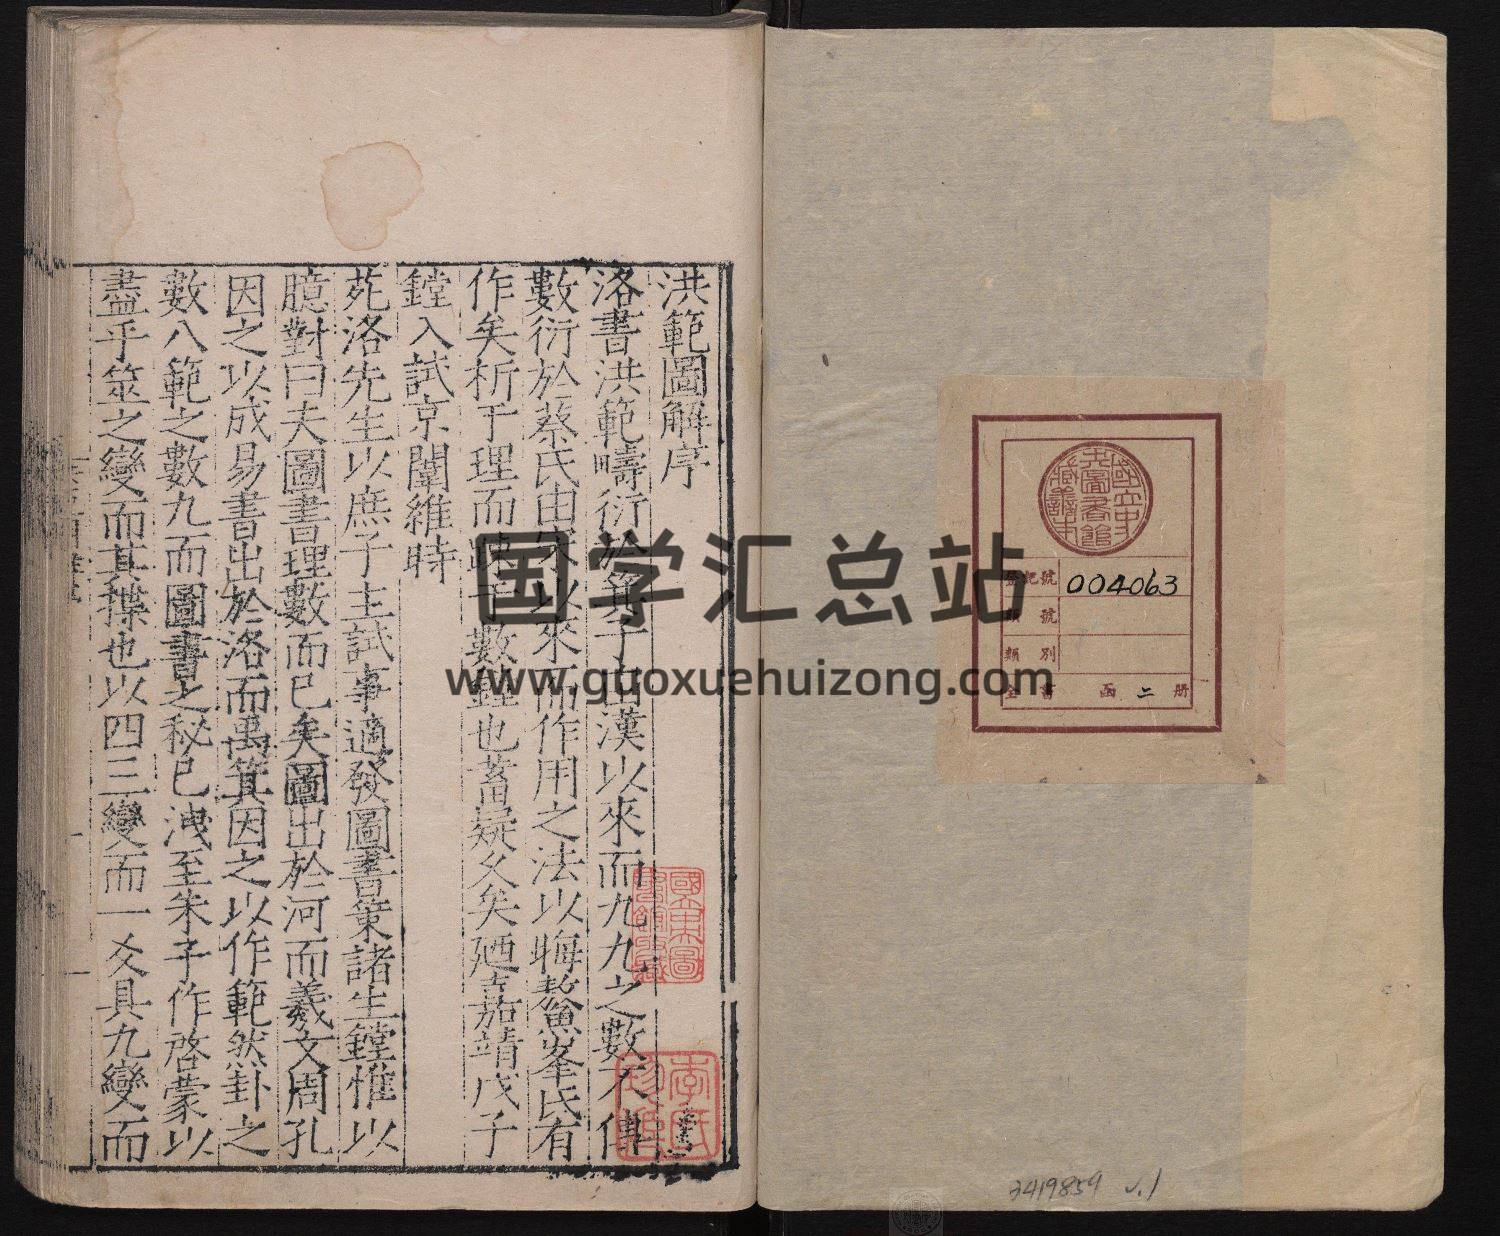 洪範圖解序
洛書洪範疇衍於箕子由漢以來而九九之數不傳
數衍於蔡氏由宋以來而作用之法以晦鰲峯氏有
作矣析于理而踈于數鏜也蓄疑久矣廼嘉靖戊子
鏜入試京闈維時
苑洛先生以庶子主試事適發圖書策諸生鏜惟以
臆對曰夫圖書理數而已矣圖出於河而羲文周孔
因之以成易書出於洛而禹箕因之以作範然卦之
數八範之數九而圖書之秘已洩至朱子作啓蒙以
盡乎筮之變而其揲也以四三變而一爻具九變而
國立中央圖書館藏善本
登記號 004063
類號
類別
全書 函 二 册
3419859 v.1
国学汇总站
www.guoxuehuizong.com